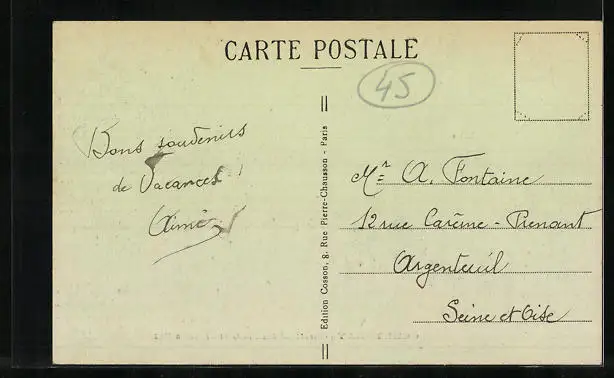 CARTE POSTALE
45
Bons souvenirs
de Vacances
Aimé
Edition Cosson, 8, Rue Pierre-Chausson - Paris
Mr A. Fontaine
12 rue Carême-Prenant
Argenteuil
Seine et Oise